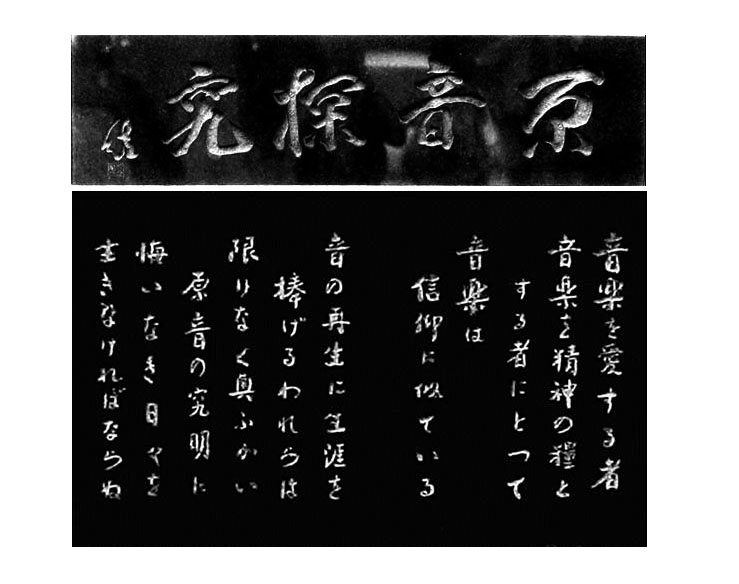 原音探究
音楽を愛する者
音楽を精神の糧と
する者にとつて
音楽は
信仰に似ている
音の再生に生涯を
捧げるわれらは
限りなく奥ふかい
原音の究明に
悔いなき日々を
生きなければならぬ